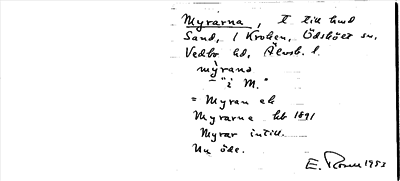 Myrarna, t till hmd
Sand, i Kroken, Ödskölt sn,
Vedbo hd, Älvsb. l.
myrana
– "i M."
= Myran ek
Myrarne hb 1891
Myrar intill.
Nu öde.
E. 1953